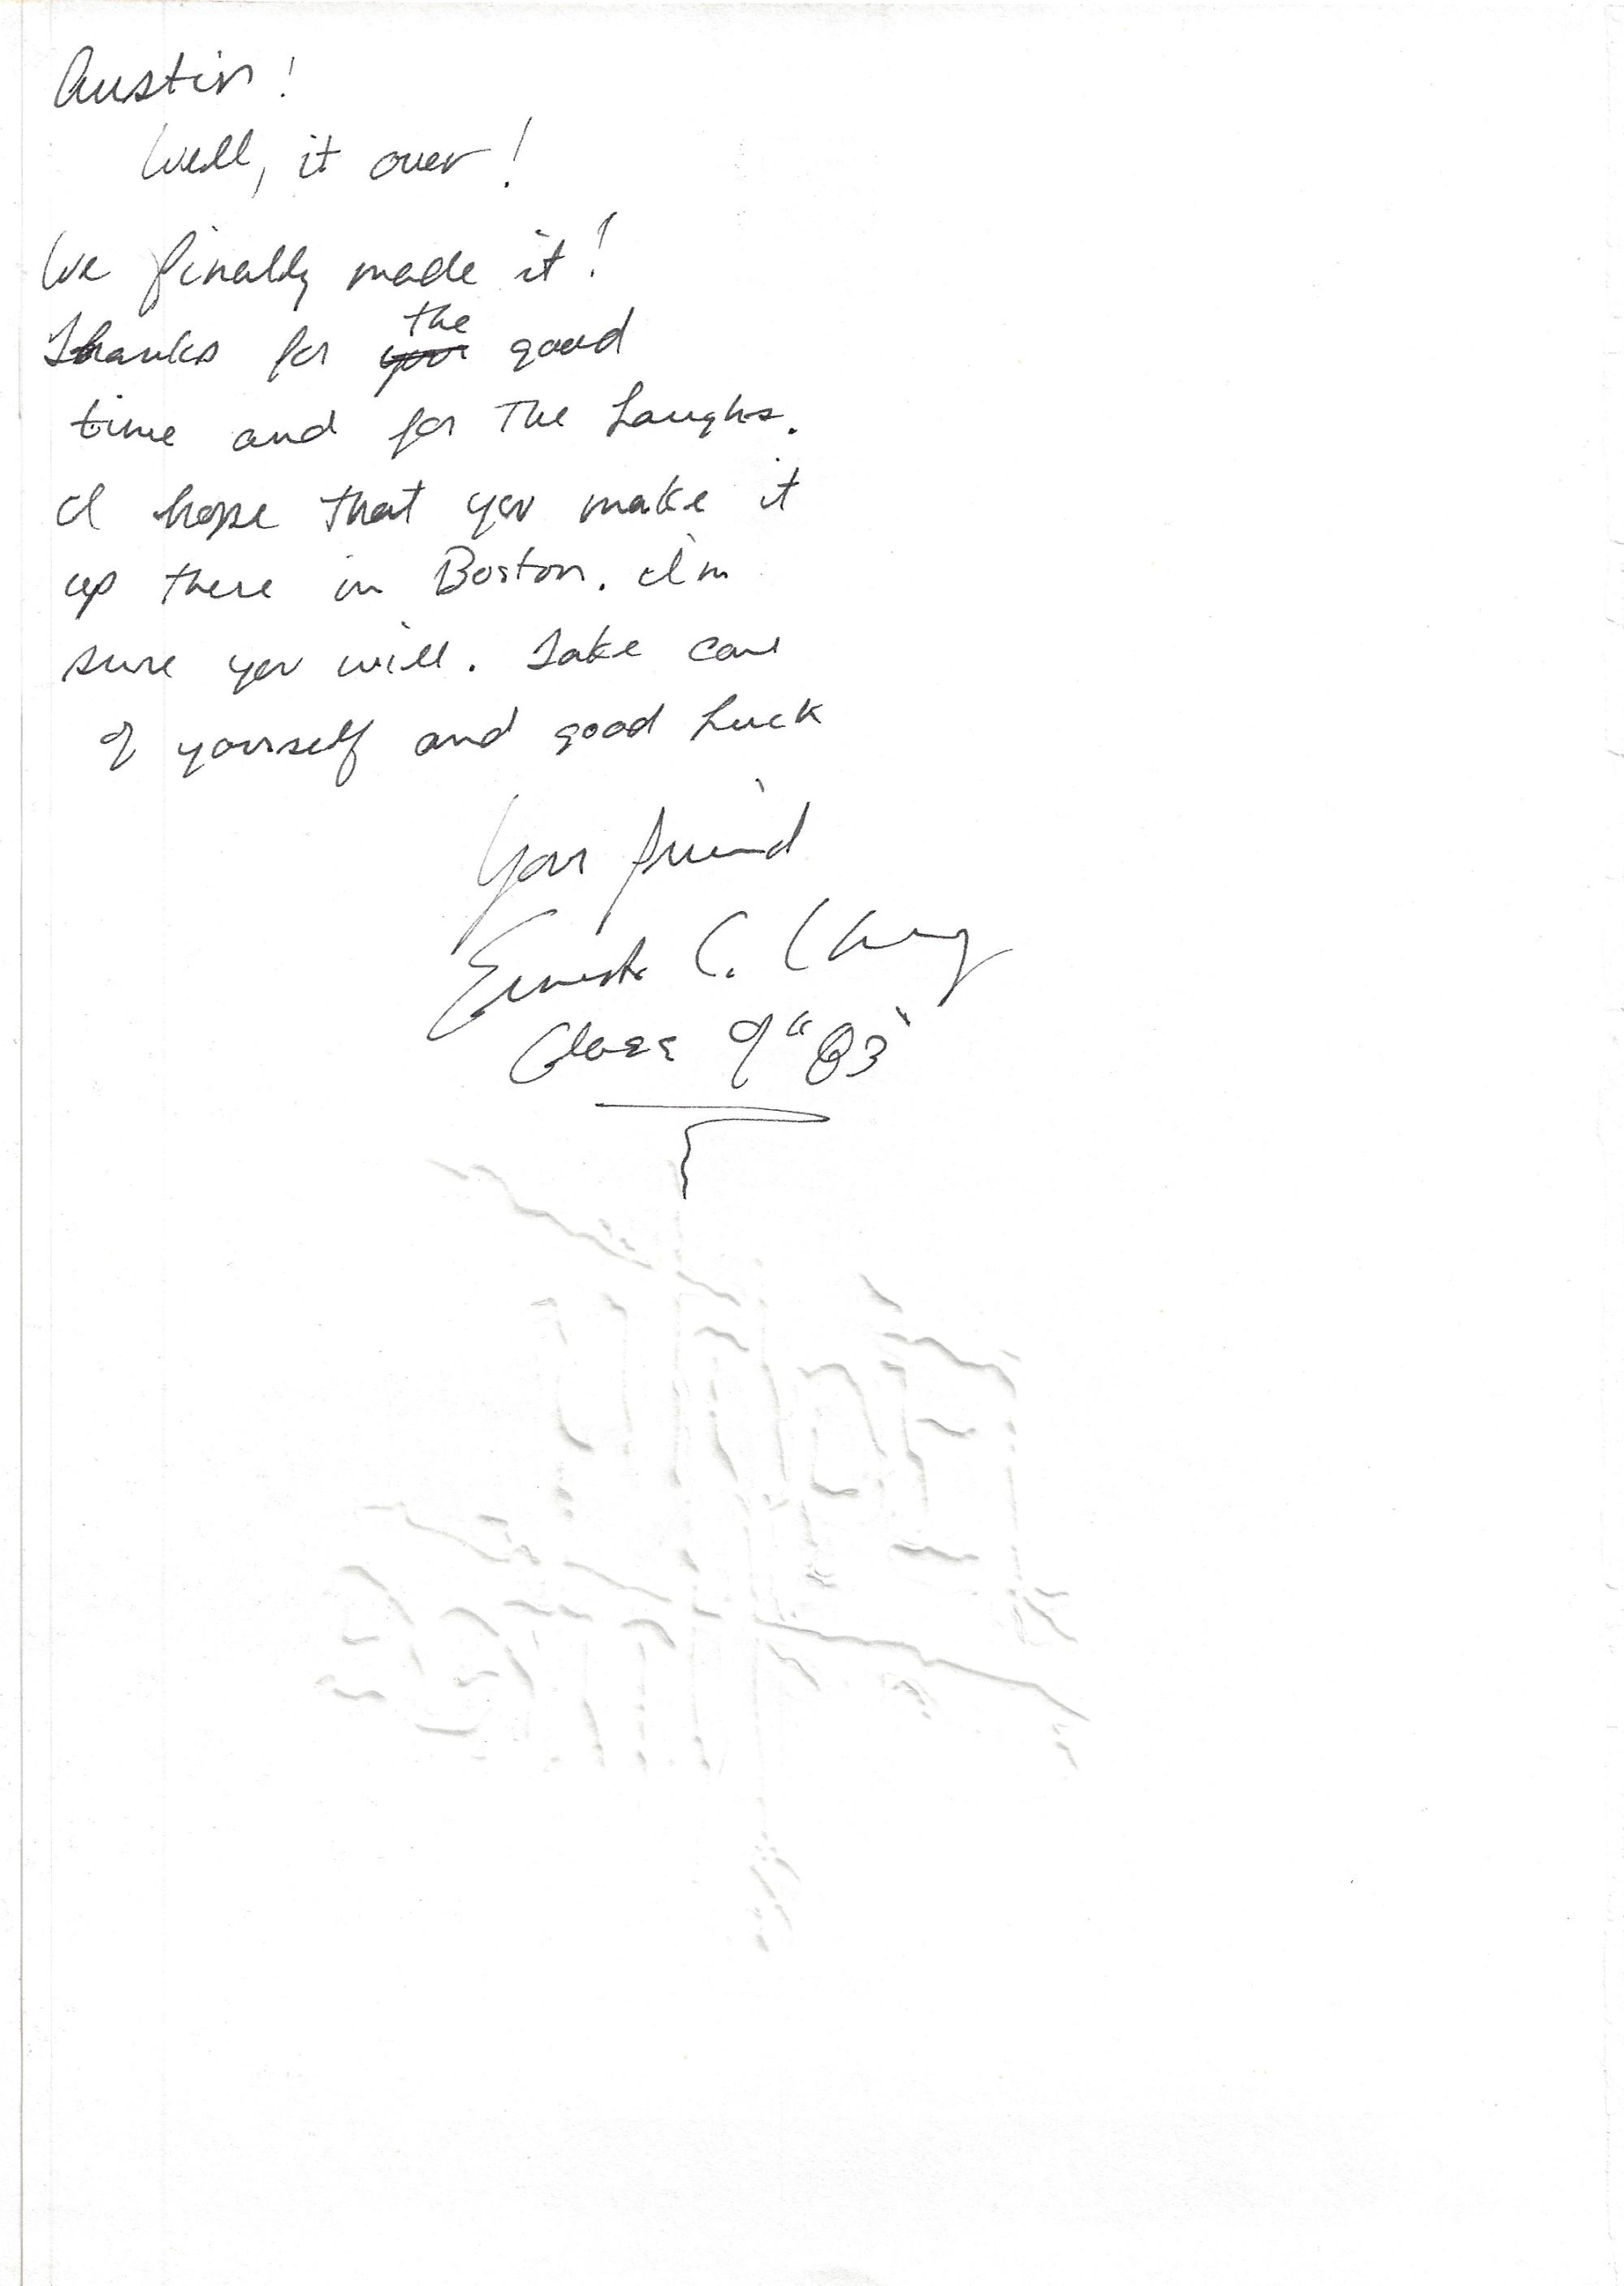 Austin!
Well, it over!
We finally made it!
Thanks for the good
time and for The Laughs.
I hope that you make it
up there in Boston. I'm
sure you will. Take care
of yourself and good Luck
Your friend
C.
Class of "83"